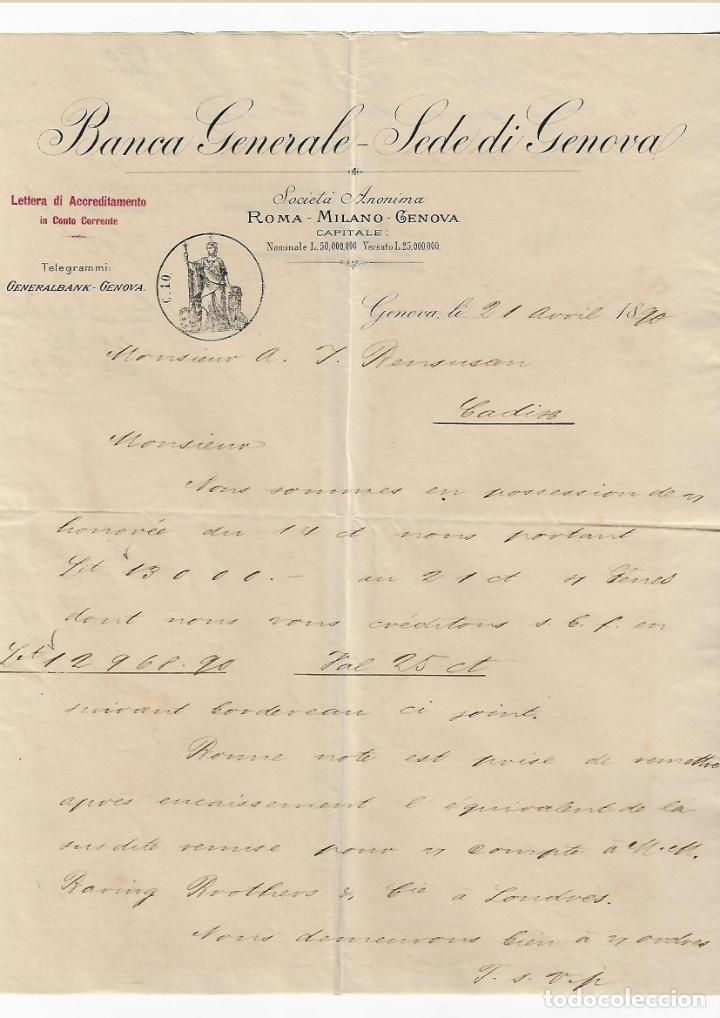 Banca Generale - Sede di Genova
Lettera di Accreditamento
in Conto Corrente
Società Anonima
ROMA - MILANO - GENOVA
CAPITALE:
Nominale L. 50,000,000 Versato L. 25,000,000.
Telegrammi:
GENERALBANK - GENOVA.
C. 10.
Genova, li 21 avril 1890
Monsieur A. J. Bensusan
Cadix
Monsieur
Nous sommes en possession de v/
honorée du 14 ct nous portant
Lit 13000.- au 21 ct s/ Gênes
dont nous vous créditons s. b. f. en
Lit 12968.90 Val 25 ct
suivant bordereau ci joint.
Bonne note est prise de remettre
après encaissement l'équivalent de la
susdite remise pour v/ compte à M.M.
Baring Brothers & Cie à Londres.
Nous demeurons bien à v/ ordres
T. s. V. p
todocoleccion